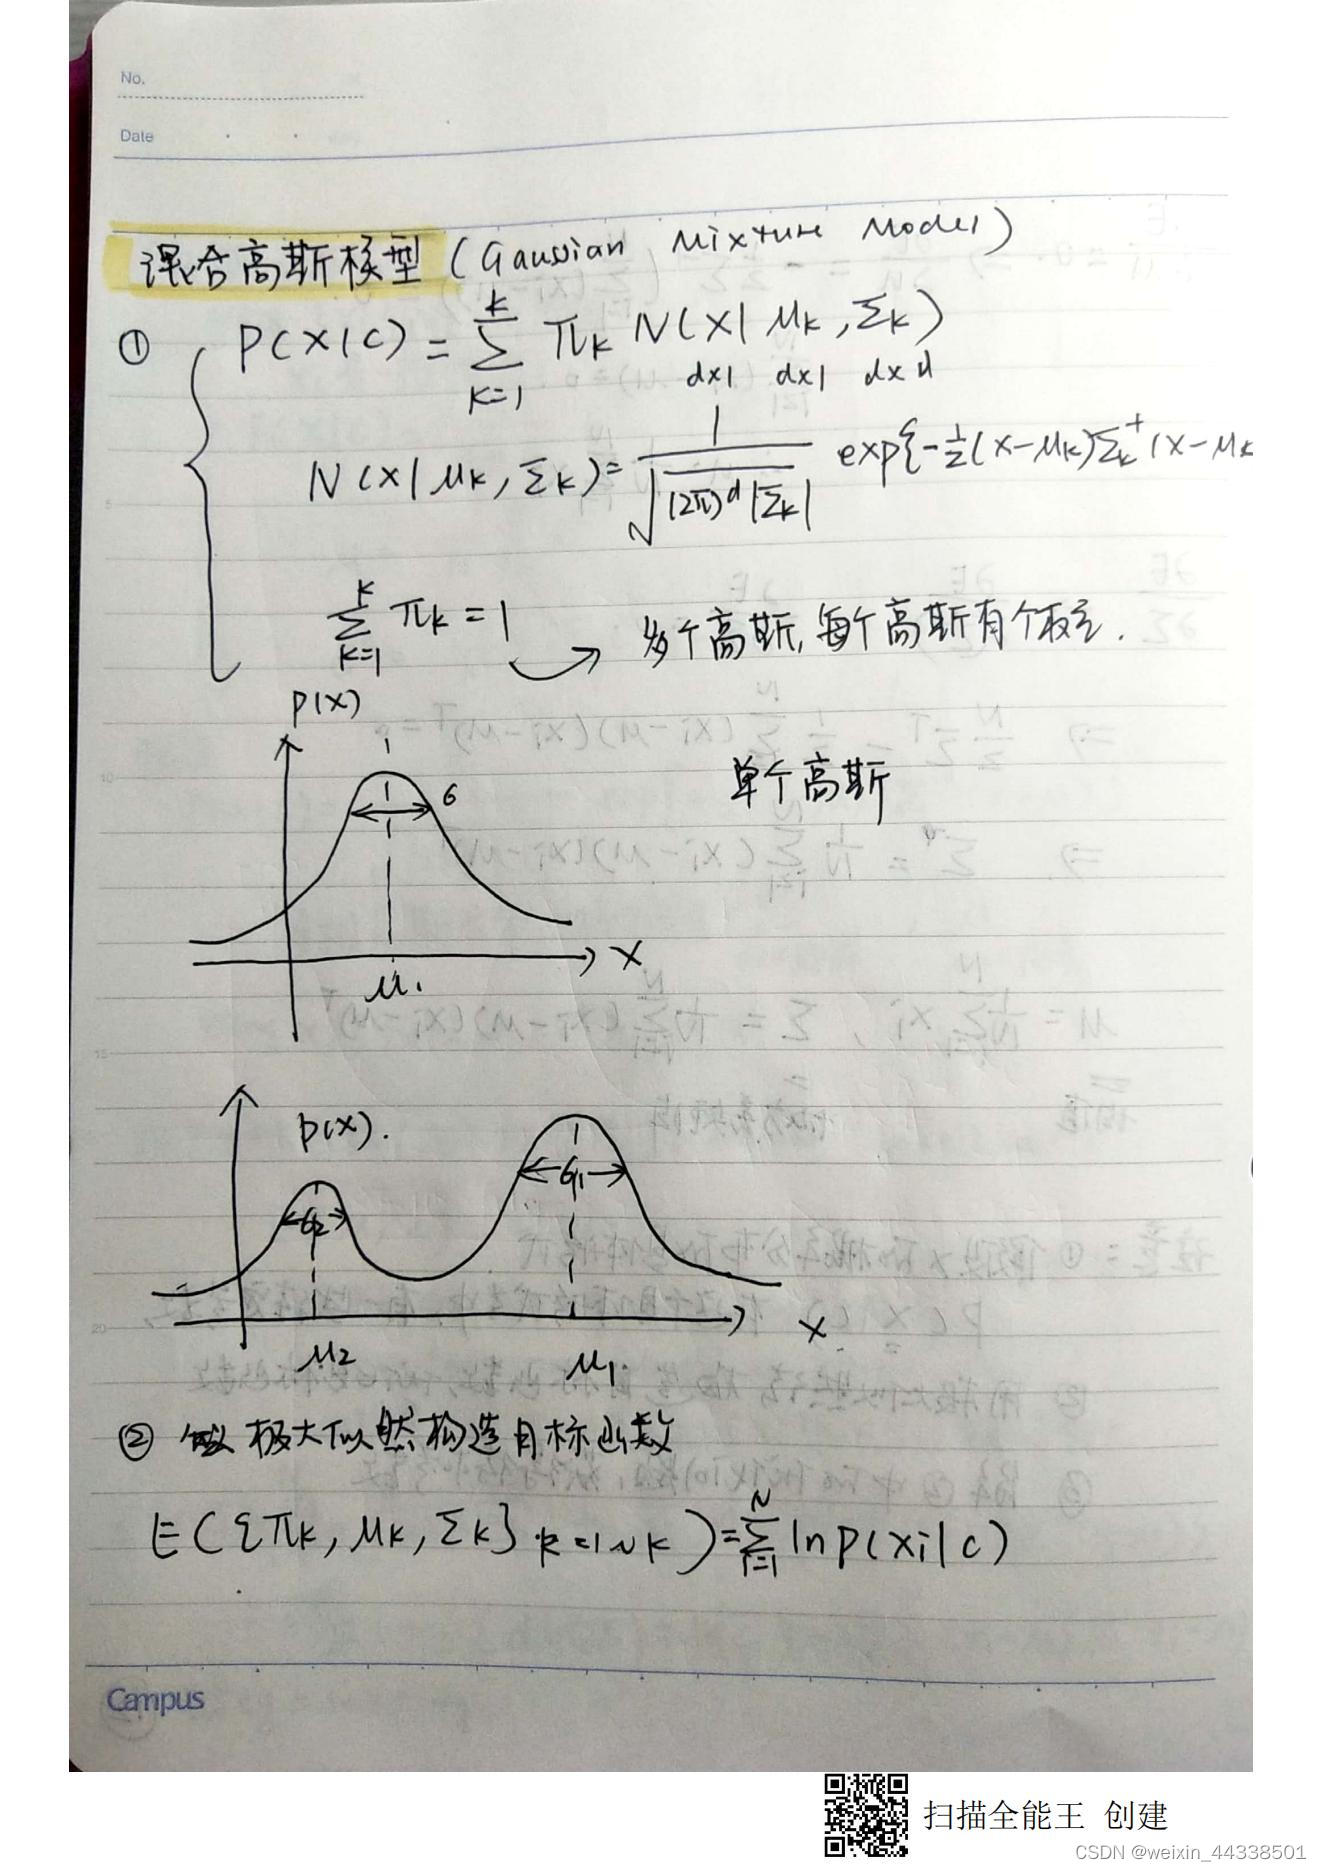 No.
Date
混合高斯模型 (Gaussian Mixture Model)
① P(X|C) = \sum_{K=1}^{K} π_K N(X|μ_K, Σ_K)
dx1 dx1 dxd
N(X|μ_K, Σ_K) = \frac{1}{\sqrt{(2π)^d |Σ_K|}} exp{-\frac{1}{2}(X-μ_K)Σ_K^+(X-μ_K
\sum_{K=1}^{K} π_K = 1 → 多个高斯, 每个高斯有个权重.
P(X)
单个高斯
6
X
μ_1
P(X).
σ_1
σ_2
X
μ_2 μ_1.
② 极大似然构造目标函数
E({π_K, μ_K, Σ_K} k=1~K) = \sum_{i=1}^{N} ln P(Xi|C)
Campus
扫描全能王 创建
CSDN @weixin_44338501